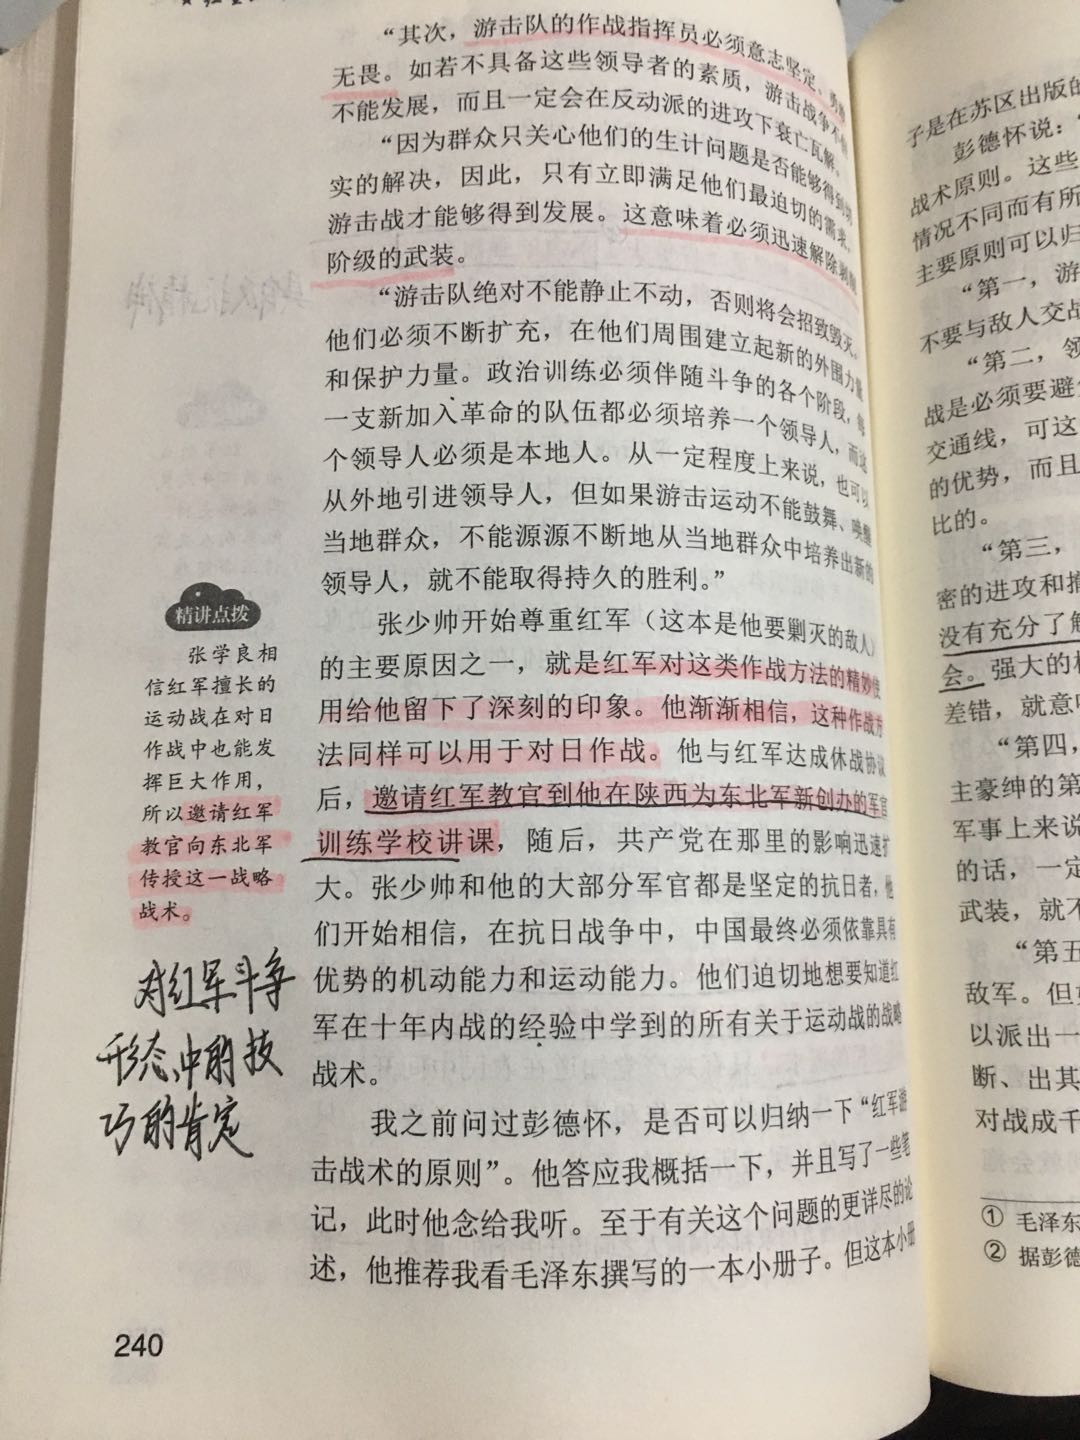 “其次，游击队的作战指挥员必须意志坚定、勇敢
无畏。如若不具备这些领导者的素质，游击战争不但
不能发展，而且一定会在反动派的进攻下衰亡瓦解。
“因为群众只关心他们的生计问题是否能够得到切
实的解决，因此，只有立即满足他们最迫切的需求，
游击战才能够得到发展。这意味着必须迅速解除剥削
阶级的武装。
“游击队绝对不能静止不动，否则将会招致毁灭。
他们必须不断扩充，在他们周围建立起新的外围力量
和保护力量。政治训练必须伴随斗争的各个阶段，每
一支新加入革命的队伍都必须培养一个领导人，而这
个领导人必须是本地人。从一定程度上来说，也可以
从外地引进领导人，但如果游击运动不能鼓舞、唤醒
当地群众，不能源源不断地从当地群众中培养出新的
领导人，就不能取得持久的胜利。”
张少帅开始尊重红军（这本是他要剿灭的敌人）
的主要原因之一，就是红军对这类作战方法的精妙使
用给他留下了深刻的印象。他渐渐相信，这种作战方
法同样可以用于对日作战。他与红军达成休战协议
后，邀请红军教官到他在陕西为东北军新创办的军官
训练学校讲课，随后，共产党在那里的影响迅速扩
大。张少帅和他的大部分军官都是坚定的抗日者，他
们开始相信，在抗日战争中，中国最终必须依靠具有
优势的机动能力和运动能力。他们迫切地想要知道红
军在十年内战的经验中学到的所有关于运动战的战略
战术。
我之前问过彭德怀，是否可以归纳一下“红军游
击战术的原则”。他答应我概括一下，并且写了一些笔
记，此时他念给我听。至于有关这个问题的更详尽的论
述，他推荐我看毛泽东撰写的一本小册子。但这本小册
精讲点拨
张学良相
信红军擅长的
运动战在对日
作战中也能发
挥巨大作用，
所以邀请红军
教官向东北军
传授这一战略
战术。
对红军斗争
形态中的技
巧的肯定
240
子是在苏区出版的
彭德怀说：“
战术原则。这些
情况不同而有所
主要原则可以归
“第一，游
不要与敌人交战
“第二，领
战是必须要避
交通线，可这
的优势，而且
比的。
“第三，
密的进攻和撤
没有充分了解
会。强大的机
差错，就意
“第四，
主豪绅的第
军事上来说
的话，一定
武装，就不
“第五
敌军。但
以派出一
断、出其
对战成千
① 毛泽东
② 据彭德